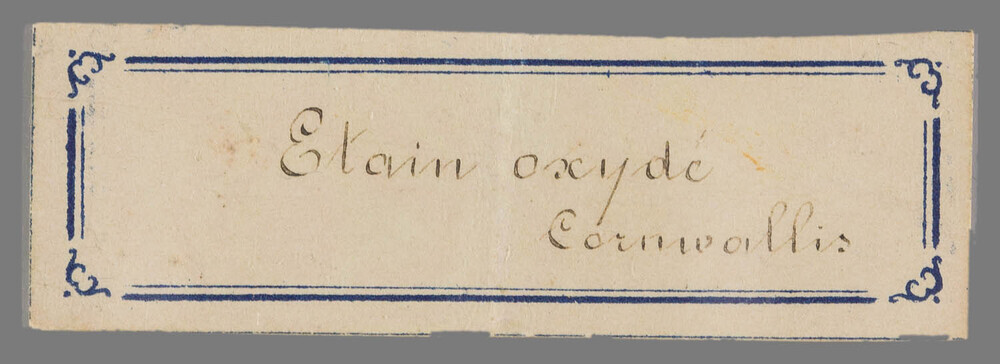 Etain oxydé
Cornwallis